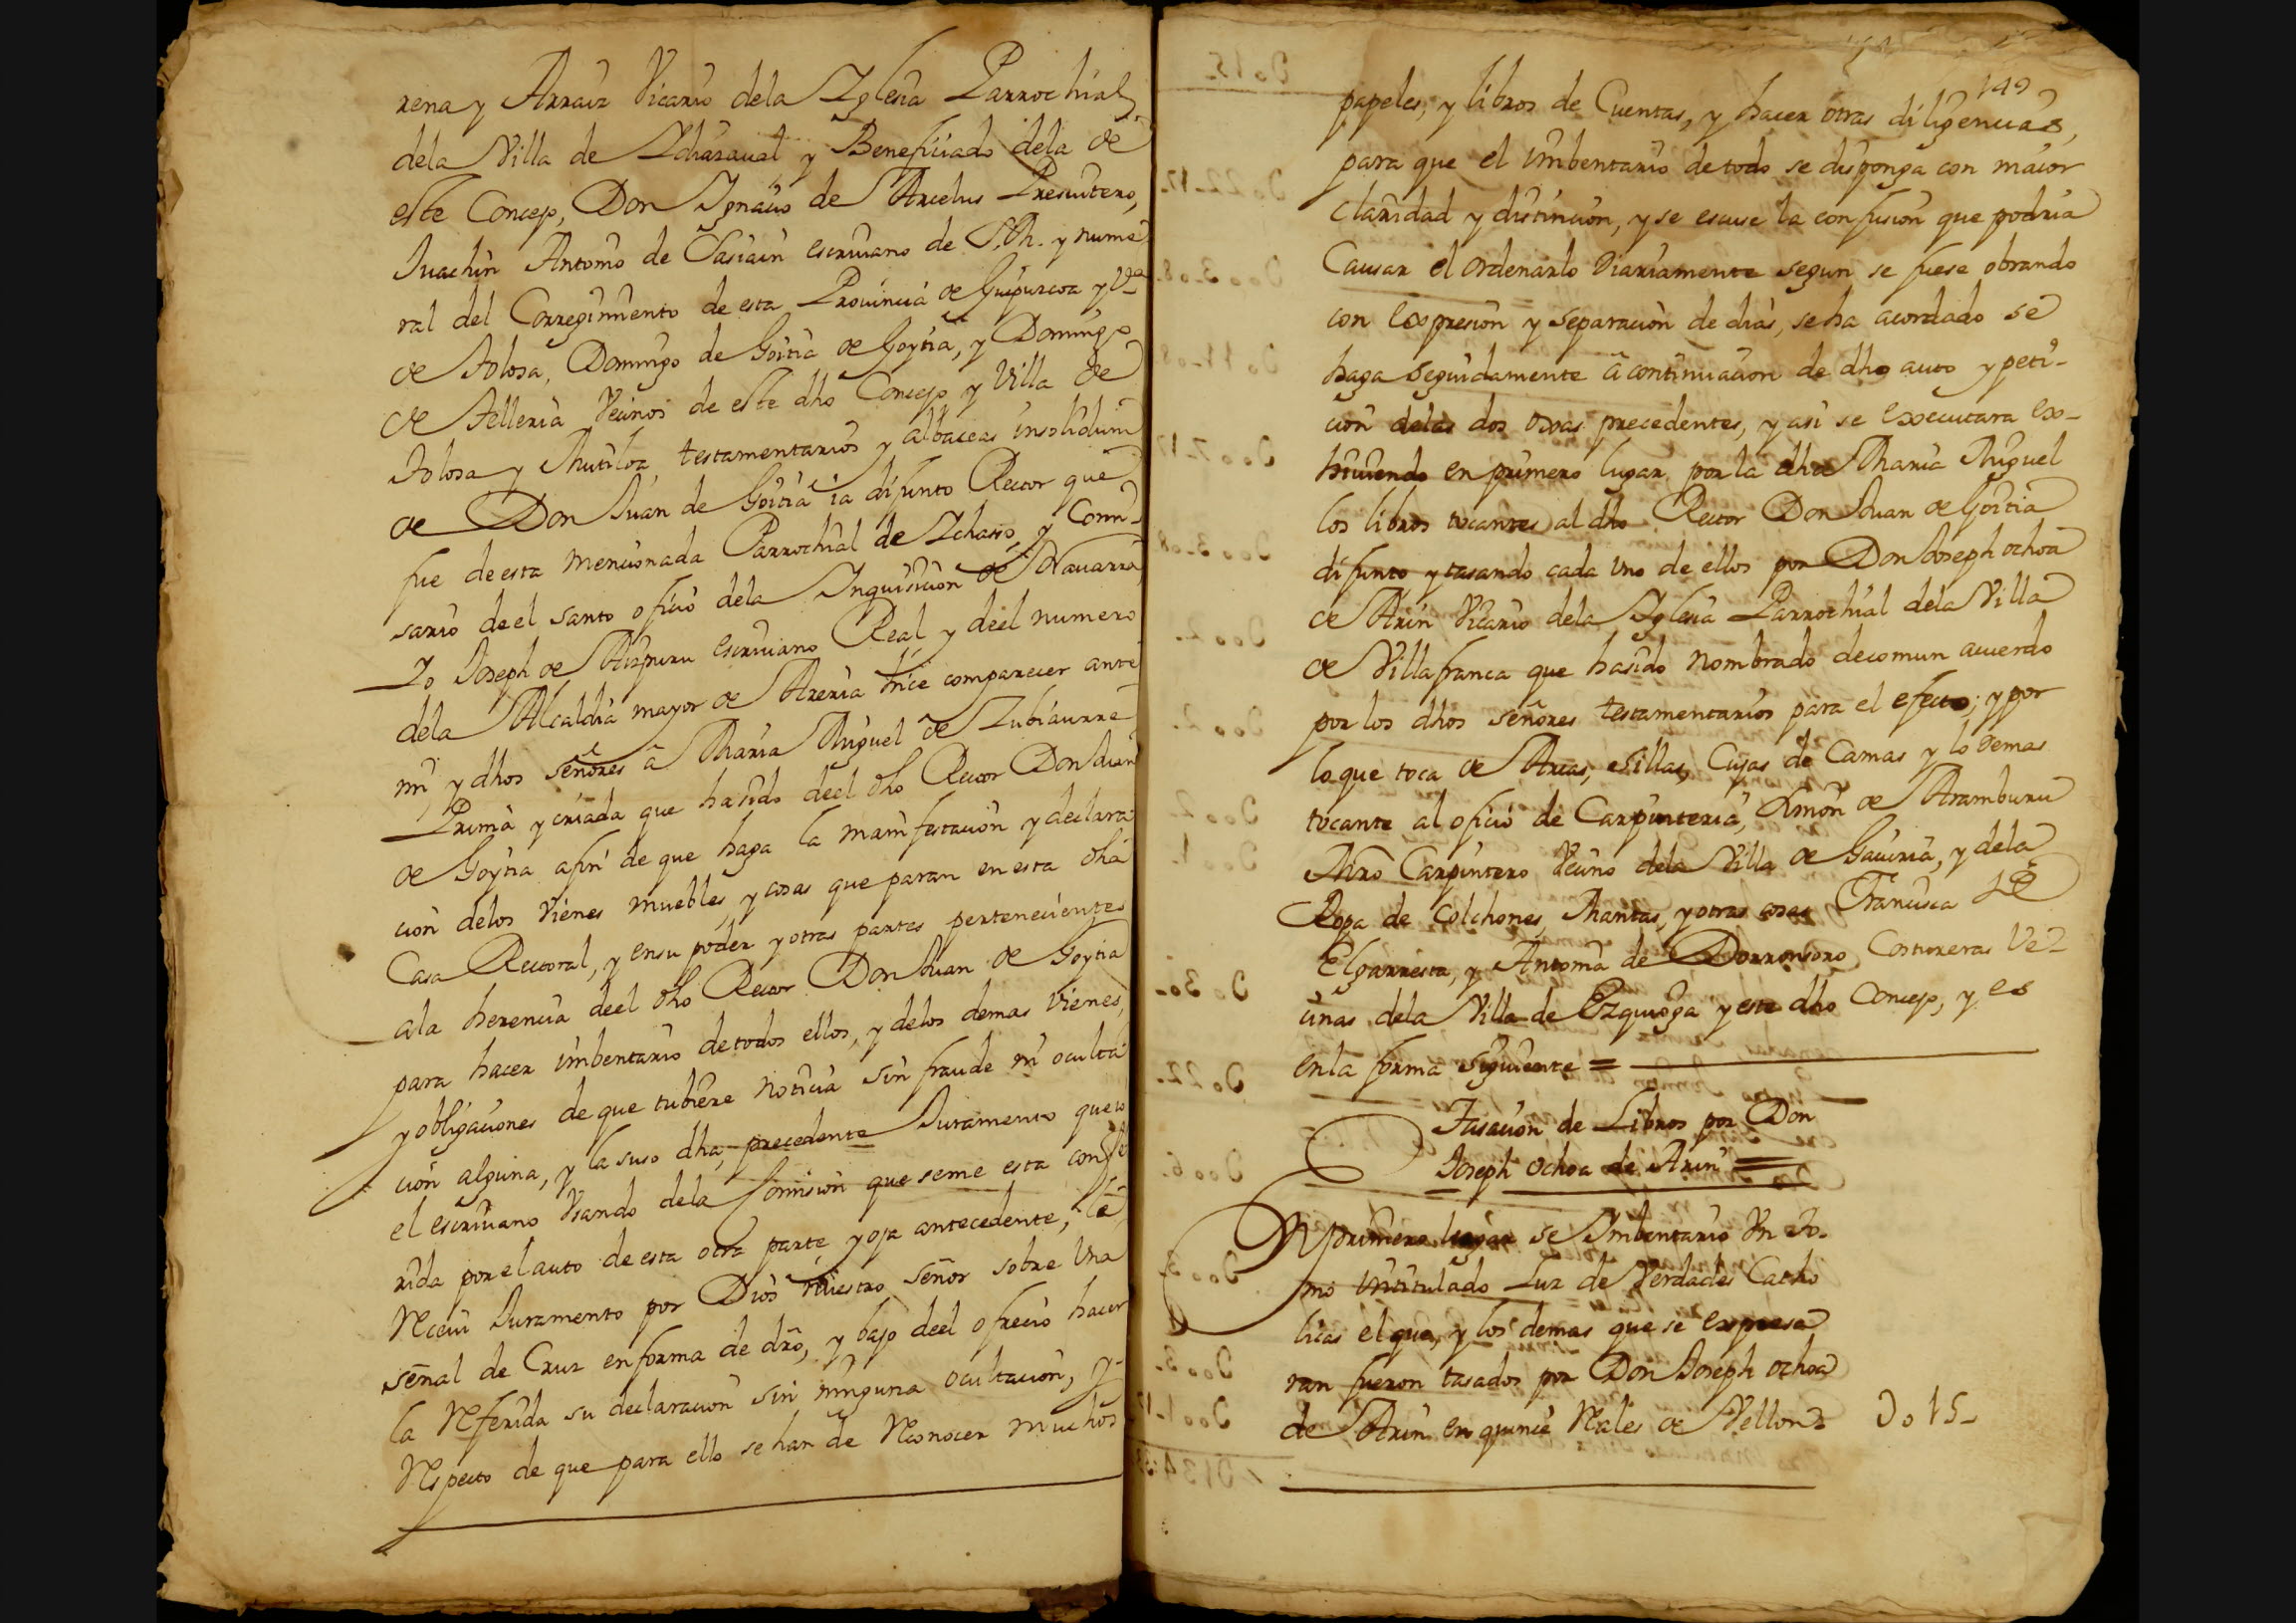 rena y Arraiz Vicario dela Iglesia Parrochial,
dela Villa de Ichasaval y Beneficiado dela de
este Concejo, Don Ignacio de Arcelus Presuitero,
Juachin Antonio de Sasiain escriuano de S.M. y nume
ral del Corregimiento de esta Prouincia de Guipuzcoa y Vº
de Tolosa, Domingo de Goitia de Goytia, y Domingo
de Telleria Vecinos de este dho Concejo y Villa de
Tolosa y Mutiloa testamentarios y albaceas insolidum
de Don Juan de Goitia ia difunto Rector que
fue de esta mencionada Parrochial de Ichasso, y Comi-
sario deel santo oficio dela Inquisicion de Navarra,
Yo Joseph de Aizpuru escriuano Real y deel numero
dela Alcaldia mayor de Areria hice comparecer ante
mi, y dhos señores â Maria Miguel de Zubiaurre
Prima y criada que ha sido deel dho Rector Don Juan
de Goytia afin de que haga la manifestacion y declara
cion delos vienes muebles, y cosas que paran en esta dha
Casa Rectoral, y ensu poder y otras partes pertenecientes
ala herencia deel dho Rector Don Juan de Goytia
para hacer imbentario detodos ellos, y delos demas vienes,
y obligaciones de que tubiere noticia sin fraude ni oculta
cion alguna, y la suso dha, precedente Juramento que io
el escriuano Vsando dela Comision que seme esta confe
rida por el auto de esta otra parte, y oja antecedente, le
Receui Juramento por Dios Nuestro señor sobre Vna
señal de Cruz enforma de dro, y bajo deel ofrecio hacer
la Referida su declaracion sin ninguna ocultacion, y
Respecto de que para ello se han de Reconocer muchos
149
papeles, y libros de Cuentas, y hacer otras diligencias,
para que el imbentario de todo se disponga con maior
claridad y distincion, y se escuse la confusion que podria
Causar el ordenarlo Diariamente segun se fuese obrando
con expresion y separacion de dias, se ha acordado se
haga seguidamente â continuacion de dho auto y peti-
cion delas dos oxas precedentes, y asi se executara ex-
hiuiendo en primero lugar por la dha Maria Miguel
los libros tocantes al dho Rector Don Juan de Goitia
difunto y tasando cada Vno de ellos por Don Joseph ochoa
de Arin Vicario dela Iglesia Parrochial dela Villa
de Villafranca que ha sido nombrado decomun acuerdo
por los dhos señores testamentarios para el efecto; y por
lo que toca de Arcas, sillas, Cujas de Camas y lo demas
tocante al oficio de Carpinteria, Simon de Aramburu
Mro Carpintero Vecino dela Villa de Gauiria, y dela
Ropa de Colchones, Mantas, y otras cosas Francisca de
Elgarresta, y Antonia de Dorronsoro Costureras Ve-
cinas dela Villa de Ezquioga y este dho Concejo, y es
enla forma siguiente =
Tasacion de Libros por Don
Joseph Ochoa de Arin =
En primero lugar se Imbentario Vn to-
mo intitulado Luz de Verdades Catho
licas el que, y los demas que se expresa
ran fueron tasados por Don Joseph ochoa
de Arin en quince Reales de Vellon D o 15-